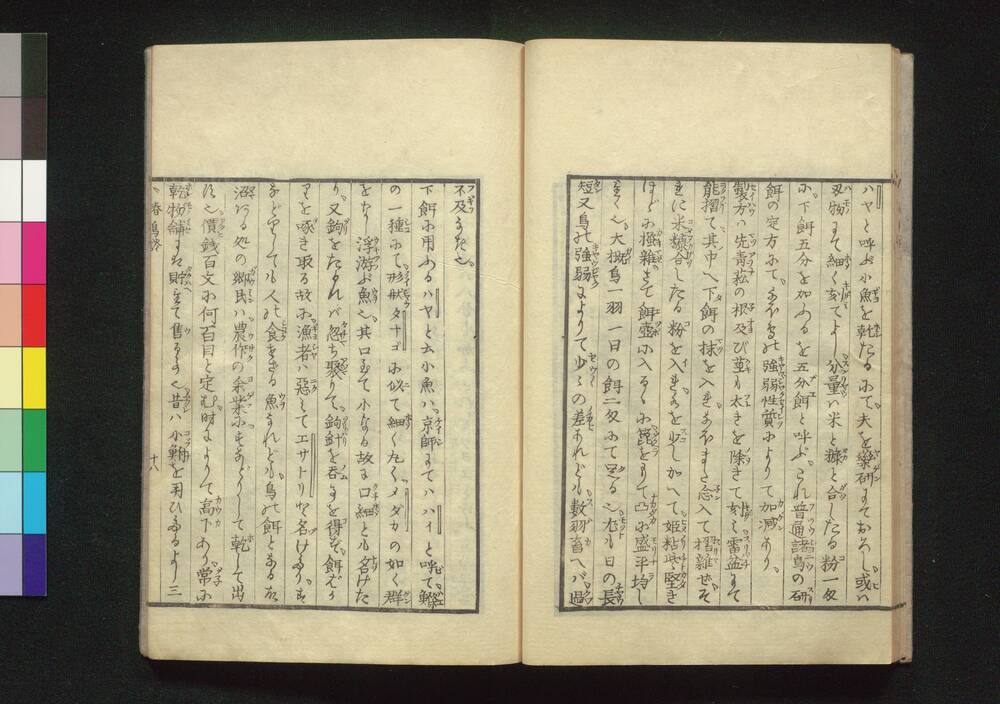 ハヤと呼ぶ小魚を乾たるにて夫を薬研にておろし或ハ
刃物にて細く刻てよし分量ハ米と糠と合したる粉一匁
に下餌五分を加ふるを五分餌と呼ぶこれ普通諸鳥の研
餌の定方にてなほ鳥の強弱性質によりて加減あり
製方ハ先青菘の根及び茎の太きを除きて刻ミ雷盆にて
能摺て其中へ下餌の抹を入れなほまた念入て摺雑ぜそ
れに米糠合したる粉を入れ水を少し加へて姫粘ほど堅き
ほどに極雑ぜて餌壺に入るるに箆をもて凸に盛平均し
大概鳥一羽一日の餌二匁にて足る也尤も日の長
短又鳥の強弱によりて少々の差あれども数羽畜へバ過
不及なき也
下餌に用ふるハヤと云小魚ハ京師にてハハイと呼て鰷
の一種にて形状タナゴに似て細く丸くメダカの如く群
をなし浮游ぶ魚也其口至て小なる故に口細とも名けた
り又鉤をたるれバ忽ち聚りて鉤針を呑事を得ず餌ばか
りを啄き取る故に漁者ハ悪ミてエサトリなど名けたりされ
などしても人の食ざる魚なれども鳥の餌とある故
沼ある処の郷民ハ農作の余業にもなどして乾して出
す也價銭百文に何百目と定む時によりて高下あり常に
乾物舗にて貯置て售るなり昔ハ小鮒を用ひたるより三
春鳥談 十八